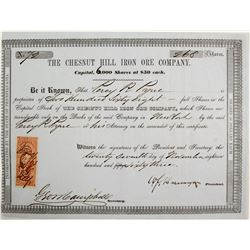 No 72 268 Shares
THE CHESNUT HILL IRON ORE COMPANY.
Capital, 6,000 Shares at $50 each.
Be it Known, That Percy R. Pyne
is proprietor of Two Hundred Sixty Eight full Shares in the
Capital Stock of THE CHESNUT HILL IRON ORE COMPANY,
transferable only on the Books of the said Company in New York by the said
Percy R. Pyne or his Attorney on the surrender of this certificate.
Witness the signatures of the President and Secretary, the
twenty seventh day of November
eighteen hundred and sixty three
President.
Geo W Campbell
Secretary.